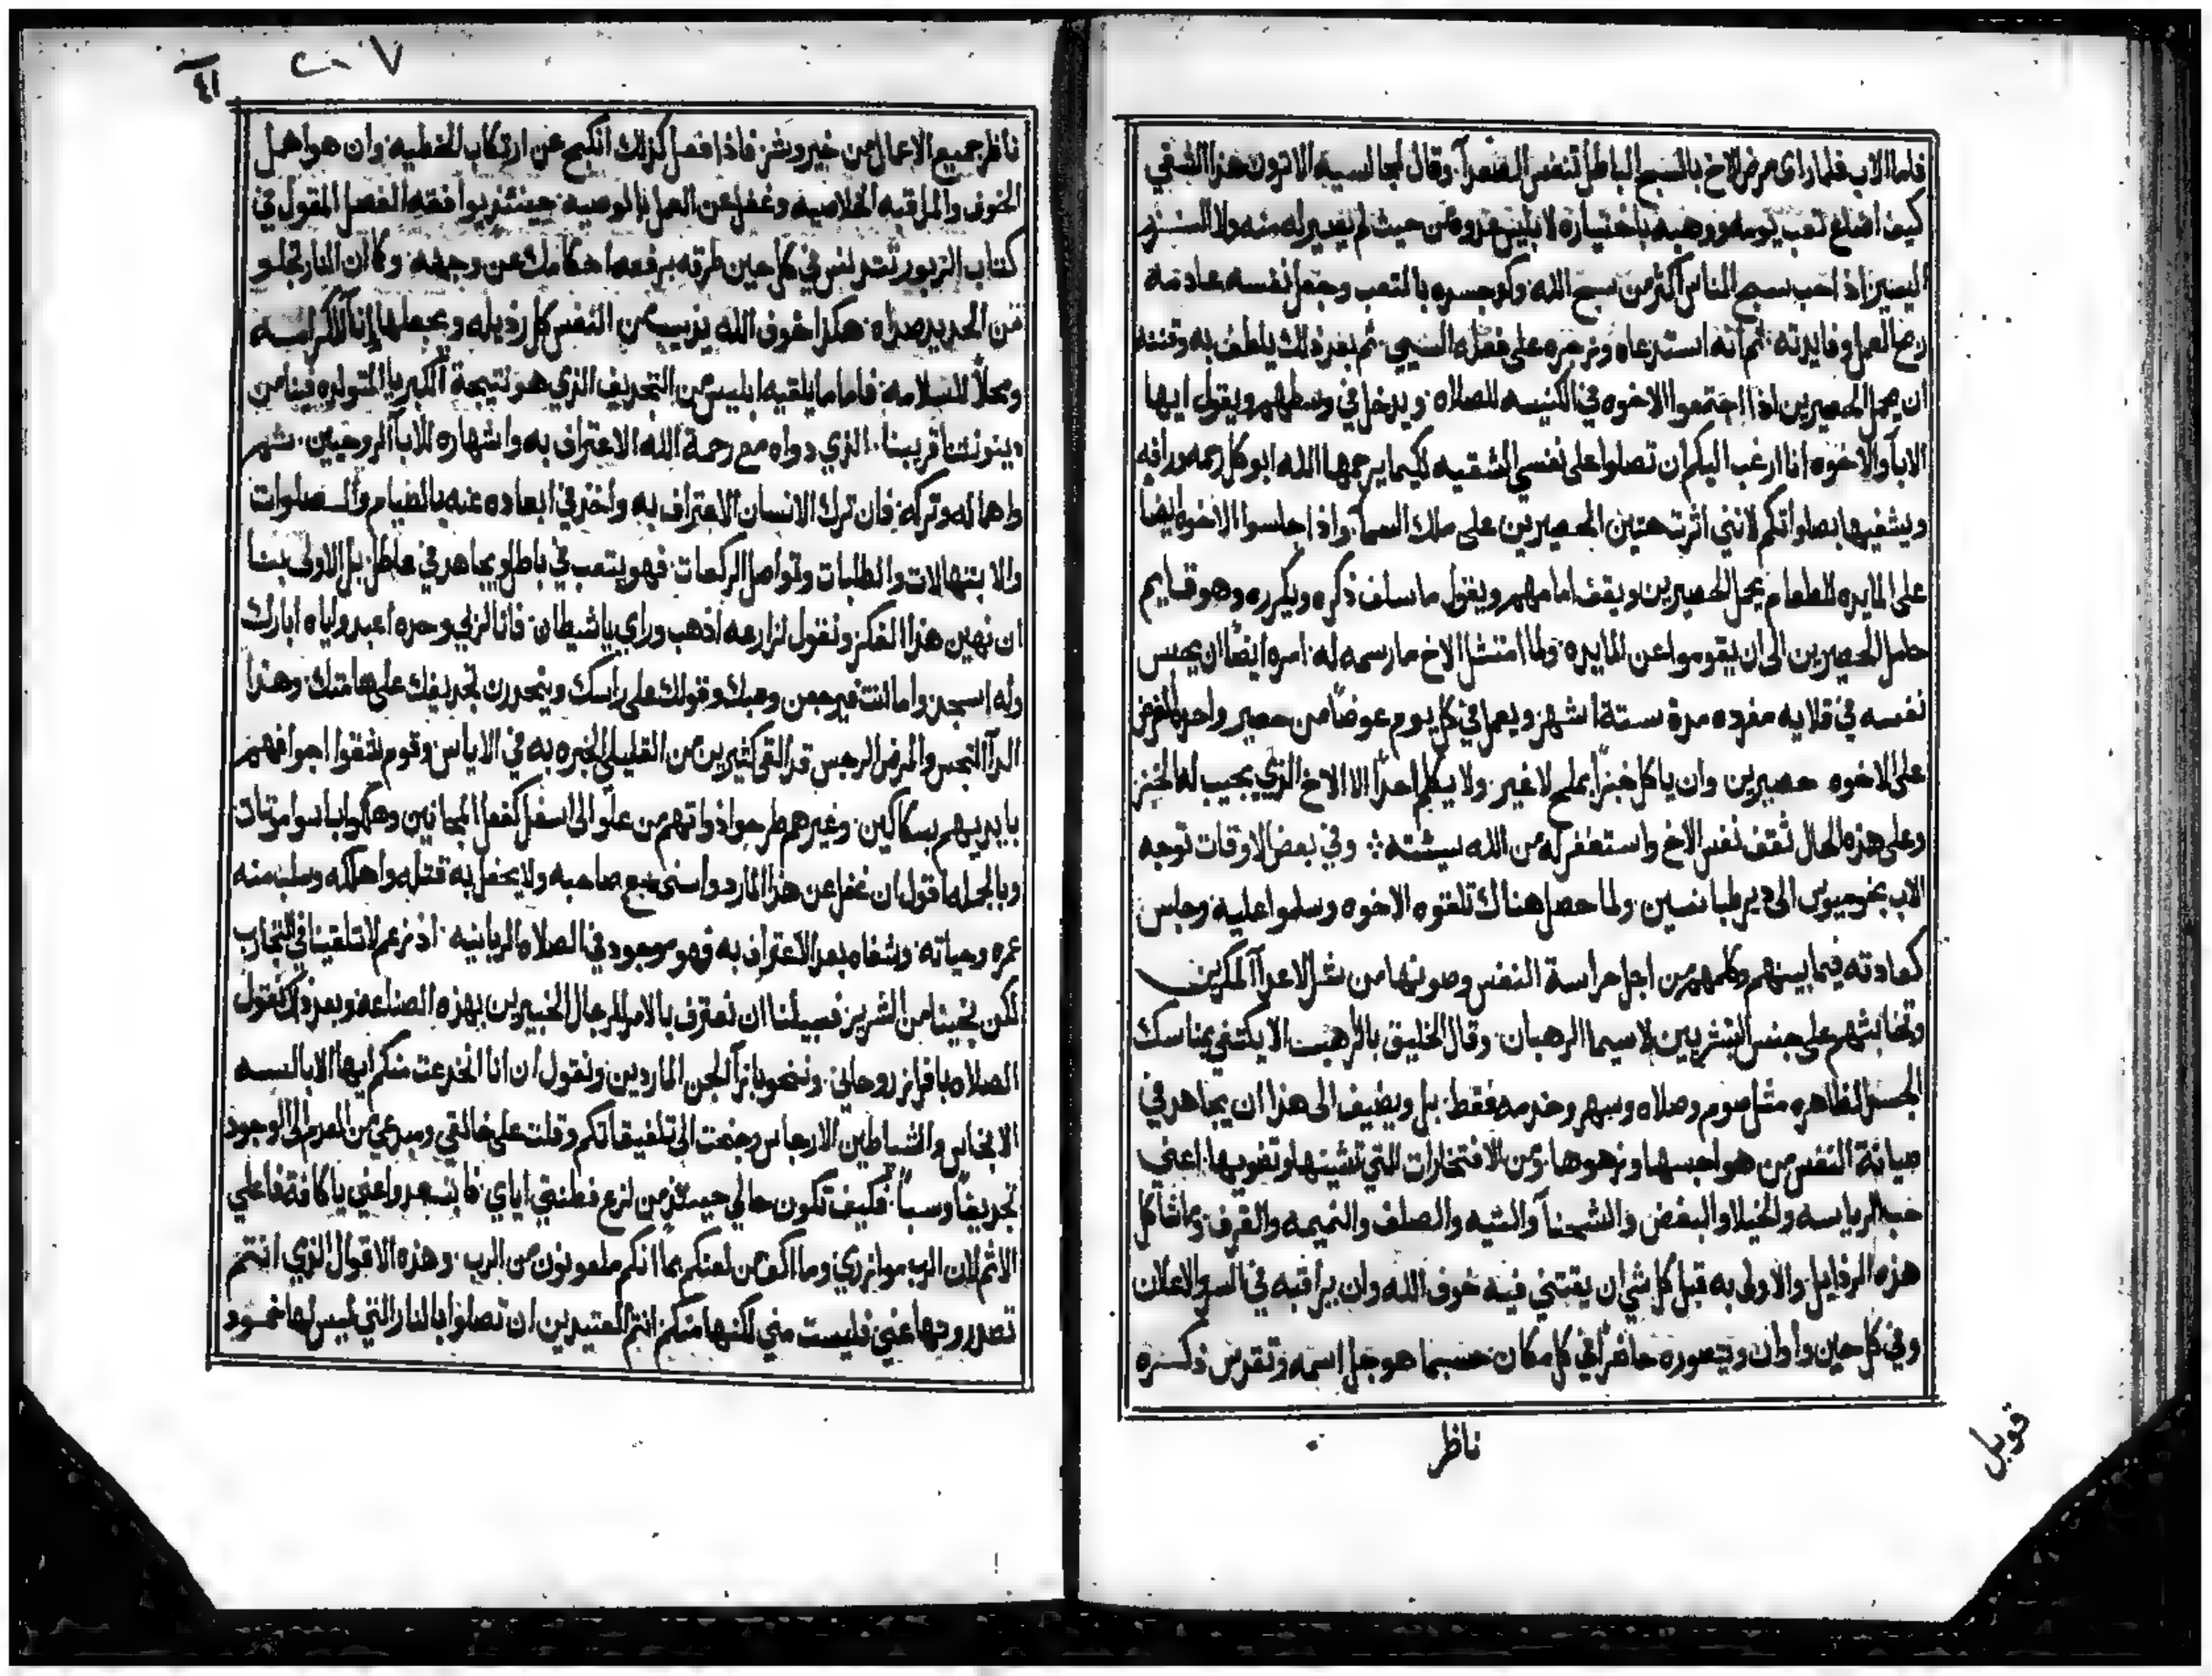 فلما الاب فلما راى مرض الاخ بالسبح الباطل تنفس الصعدآ وقال لمجالسيه الا ترون هذا الشقي
كيف اضاع تعب يومه ووهبه باختياره لابليس عدوه من حيث لم يصير له منه ولا النذر
اليسير اذ احب سبح الناس اكثر من سبح الله وكد جسده بالتعب وجعل نفسه عادمه
ربح العمل وفايدته ثم انه استدعاه وزجره على فعله السيي ثم بعد ذلك يلطف به
ان يحمل الحصيرين اذا اجتمعوا الاخوه في الكنيسه للصلاه ويدخل في وسطهم ويقول ايها
الابآ والاخوه انا ارغب اليكم ان تصلوا على نفسي الشقيه لكيما يرحمها الله ابو كل رحمه ورافه
ويشفيها بصلواتكم لانني اثرت هتين الحصيرين على ملك السمآ واذا جلسوا الاخوه ايضا
على المايده للطعام يحمل الحصيرين ويقف امامهم ويقول ما سلف ذكره ويكرره وهو قايم
حامل الحصيرين الى ان يقوموا عن المايده ولما امتثل الاخ ما رسمه له امره ايضاً ان يحبس
نفسه في قلايه مفرده مدة ستة اشهر ويعمل في كل يوم عوضاً من حصير واحد
على الاخوه حصيرين وان ياكل خبزاً بملح لا غير ولا يكلم احداً الا الاخ الذي يجيب له الخبز
وعلى هذه الحال ثقف نفس الاخ واستغفر له من الله سيئته وفي بعض الاوقات توجه
الاب بخوميوس الى دير طبانسين ولما حصل هناك تلقوه الاخوه وسلموا عليه وجلس
كعادته فيما بينهم وكلمهم من اجل حراسة النفس وصونها من الاعدآ الماكرين
على جنس البشريين لا سيما الرهبان وقال الخليق بالراهب الا يكتفي بمناسك
الجسد الظاهره مثل صوم وصلاه وسهر وخدمه فقط بل ويضيف الى هذا ان يجاهد في
صيانة النفس من هواجسها وزهوها ومن الافتخارات التي تشينها وتغويها اعني
حب الرياسه والخيلا والبغض والشحنآ والتيه والصلف والنميمه والقرف وما شاكل
هذه الرذايل والاولى به قبل كل شي ان يقتني فيه خوف الله وان يراقبه في السر والاعلان
وفي كل حين واوان ويتصوره حاضراً في كل مكان حسبما هو جل اسمه وتقدس ذكره
ناظر
قوبل
٢٠٧
٤١
ناظر جميع الاعمال من خير وشر فاذا فعل كذلك انكبح عن ارتكاب الخطيه وان هو اهمل
الخوف والمراقبه الخلاصيه وغفل عن العمل بالوصيه حينئذ يوافقه الفصل المقول في
كتاب الزبور تتدنس في كل حين طرقه برفعه احكامك عن وجهه وكما ان النار تجلو
من الحديد صداه هكذا خوف الله يذيب من النفس كل رذيله ويجعلها انآ للكرامه
ومحلاً للسلامه فاما ما يلقيه ابليس من التجديف الذي هو نتيجة الكبريا المتولده فينا من
دينونتنا قريبنا الذي دواه مع رحمة الله الاعتراف به واشهاره للابآ الروحيين
واهماله وتركه فان ترك الانسان الاعتراف به واخذ في ابعاده عنه بالصيام والصلوات
والابتهالات والطلبات وتواصل الركعات فهو يتعب في باطل ويجاهد في عاطل بل الاولى بنا
ان نهين هذا الفكر ونقول لزارعه اذهب وراي يا شيطان فانا لربي وحده اعبد واياه ابارك
وله اسجد واما انت فيرجع وقولك على راسك وينحدر تجديفك على هامتك وهذا
الدآ النجس والمرض الرجس قد القى كثيرين من القليلي الخبره به في الاياس وقوم شقوا اجوافهم
بايديهم بسكاكين وغيرهم طرحوا ذواتهم من علو الى اسفل كفعل المجانين وهلكوا باسوا موتات
وبالجمله اقول ان غفل عن هذا المارد صاحبه ولا يحفل به قتله واهلكه وسلب منه
عمره وحياته وشفاه بعد الاعتراف به فهو موجود في الصلاه الربانيه اذ نزعم لا تلقينا في التجارب
لكن نجينا من الشرير فسبيلنا ان نعترف بالامر للرجال الخبيرين بهذه الصناعه وبعد ذلك نقول
الصلاه بافراز روحاني وننحو بازآ الجن الماردين ونقول ان انا انخدعت منكم ايها الابالسه
الانجاس والشياطين الارجاس وجنحت الى تلفيقاتكم وقلت على خالقي ومبدعي من العدم الى الوجود
تجديفاً وسباً فكيف تكون حالي حينئذ من فطنتي اياي فابتعدوا عني يا كافة فاعلي
الاثم لان الرب موازري وما اكف من لعنكم بما انكم ملعونون من الرب وهذه الاقوال الذي انتم
تصدرونها عني فليست مني لكنها منكم انتم العتيدين ان تصلوا بالنار التي ليس لها خمود